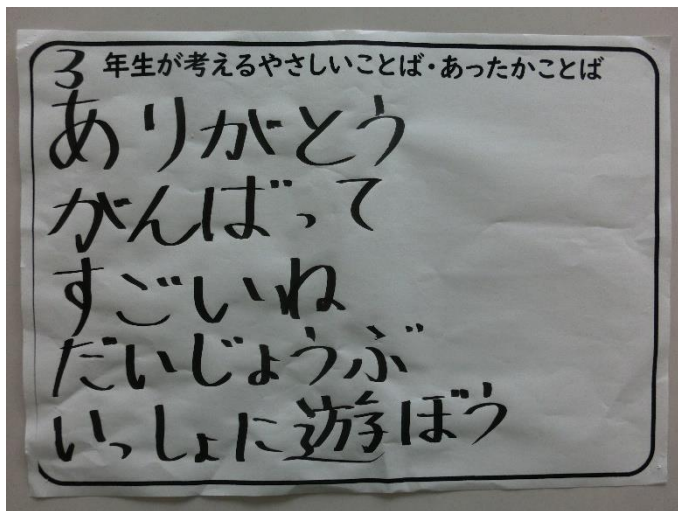 3年生が考えるやさしいことば・あったかことば
ありがとう
がんばって
すごいね
だいじょうぶ
いっしょに遊ぼう